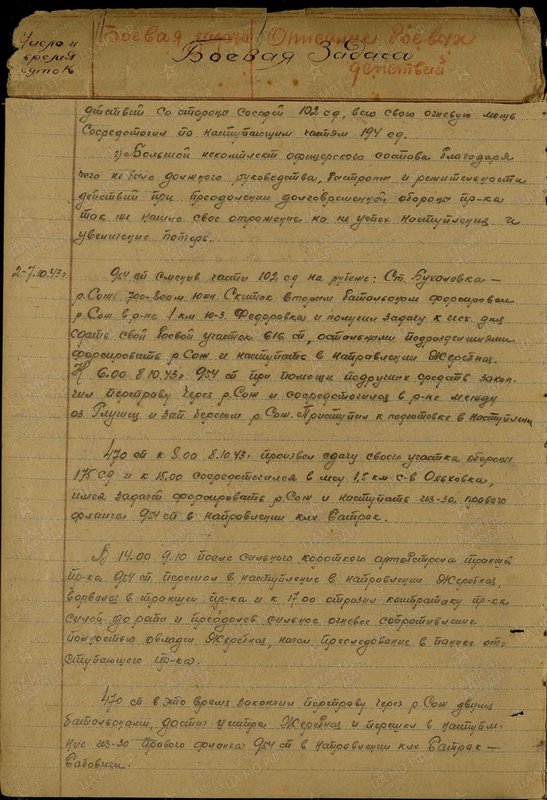 Число и
время
суток
Боевая Описание боевых
Боевая Задача
действий
действий со стороны соседей 102 сд, всю свою огневую мощь
сосредоточил по наступающим частям 194 сд.
Большой некомплект офицерского состава благодаря
чего не было должного руководства, быстроты и решительности
действий при преодолении долговременной обороны пр-ка
так же нашло свое отражение на не успех наступления и
увеличение потерь.
2-7.10.43г.
954 сп сменив части 102 сд на рубеже: Ст. Бухановка –
р. Сож 700-800м южн. Скиток вторым батальоном форсировал
р. Сож в р-не 1 км ю-з. Федоровка и получил задачу к исх. дня
сдать свой боевой участок 616 сп, остальными подразделениями
форсировать р. Сож и наступать в направлении Жеребная.
К 6.00 8.10.43г 954 сп при помощи подручных средств закон-
чил переправу через р. Сож и сосредоточился в р-не между
оз. и зап берегом р. Сож. Приступил к подготовке в наступлении
470 сп к 8.00 8.10.43г произвел сдачу своего участка обороны
175 сд и к 15.00 сосредоточился в лесу 1,5 км с-в
имея задачей форсировать р. Сож и наступать из-за правого
фланга 954 сп в направлении клх Ватрак.
В 14.00 9.10 после сильного короткого артобстрела траншей
пр-ка 954 сп перешел в наступление в направлении Жеребная,
ворвался в траншеи пр-ка и к 17.00 отразил контратаку пр-ка
силой до роты и преодолев сильное огневое сопротивление
полностью овладел Жеребная, начал преследование в панике от-
ступающего пр-ка.
470 сп в это время закончил переправу через р. Сож двумя
батальонами, достиг Жеребная и перешел в наступле-
ние из-за правого фланга 954 сп в направлении клх Ватрак –
Вабовичи.